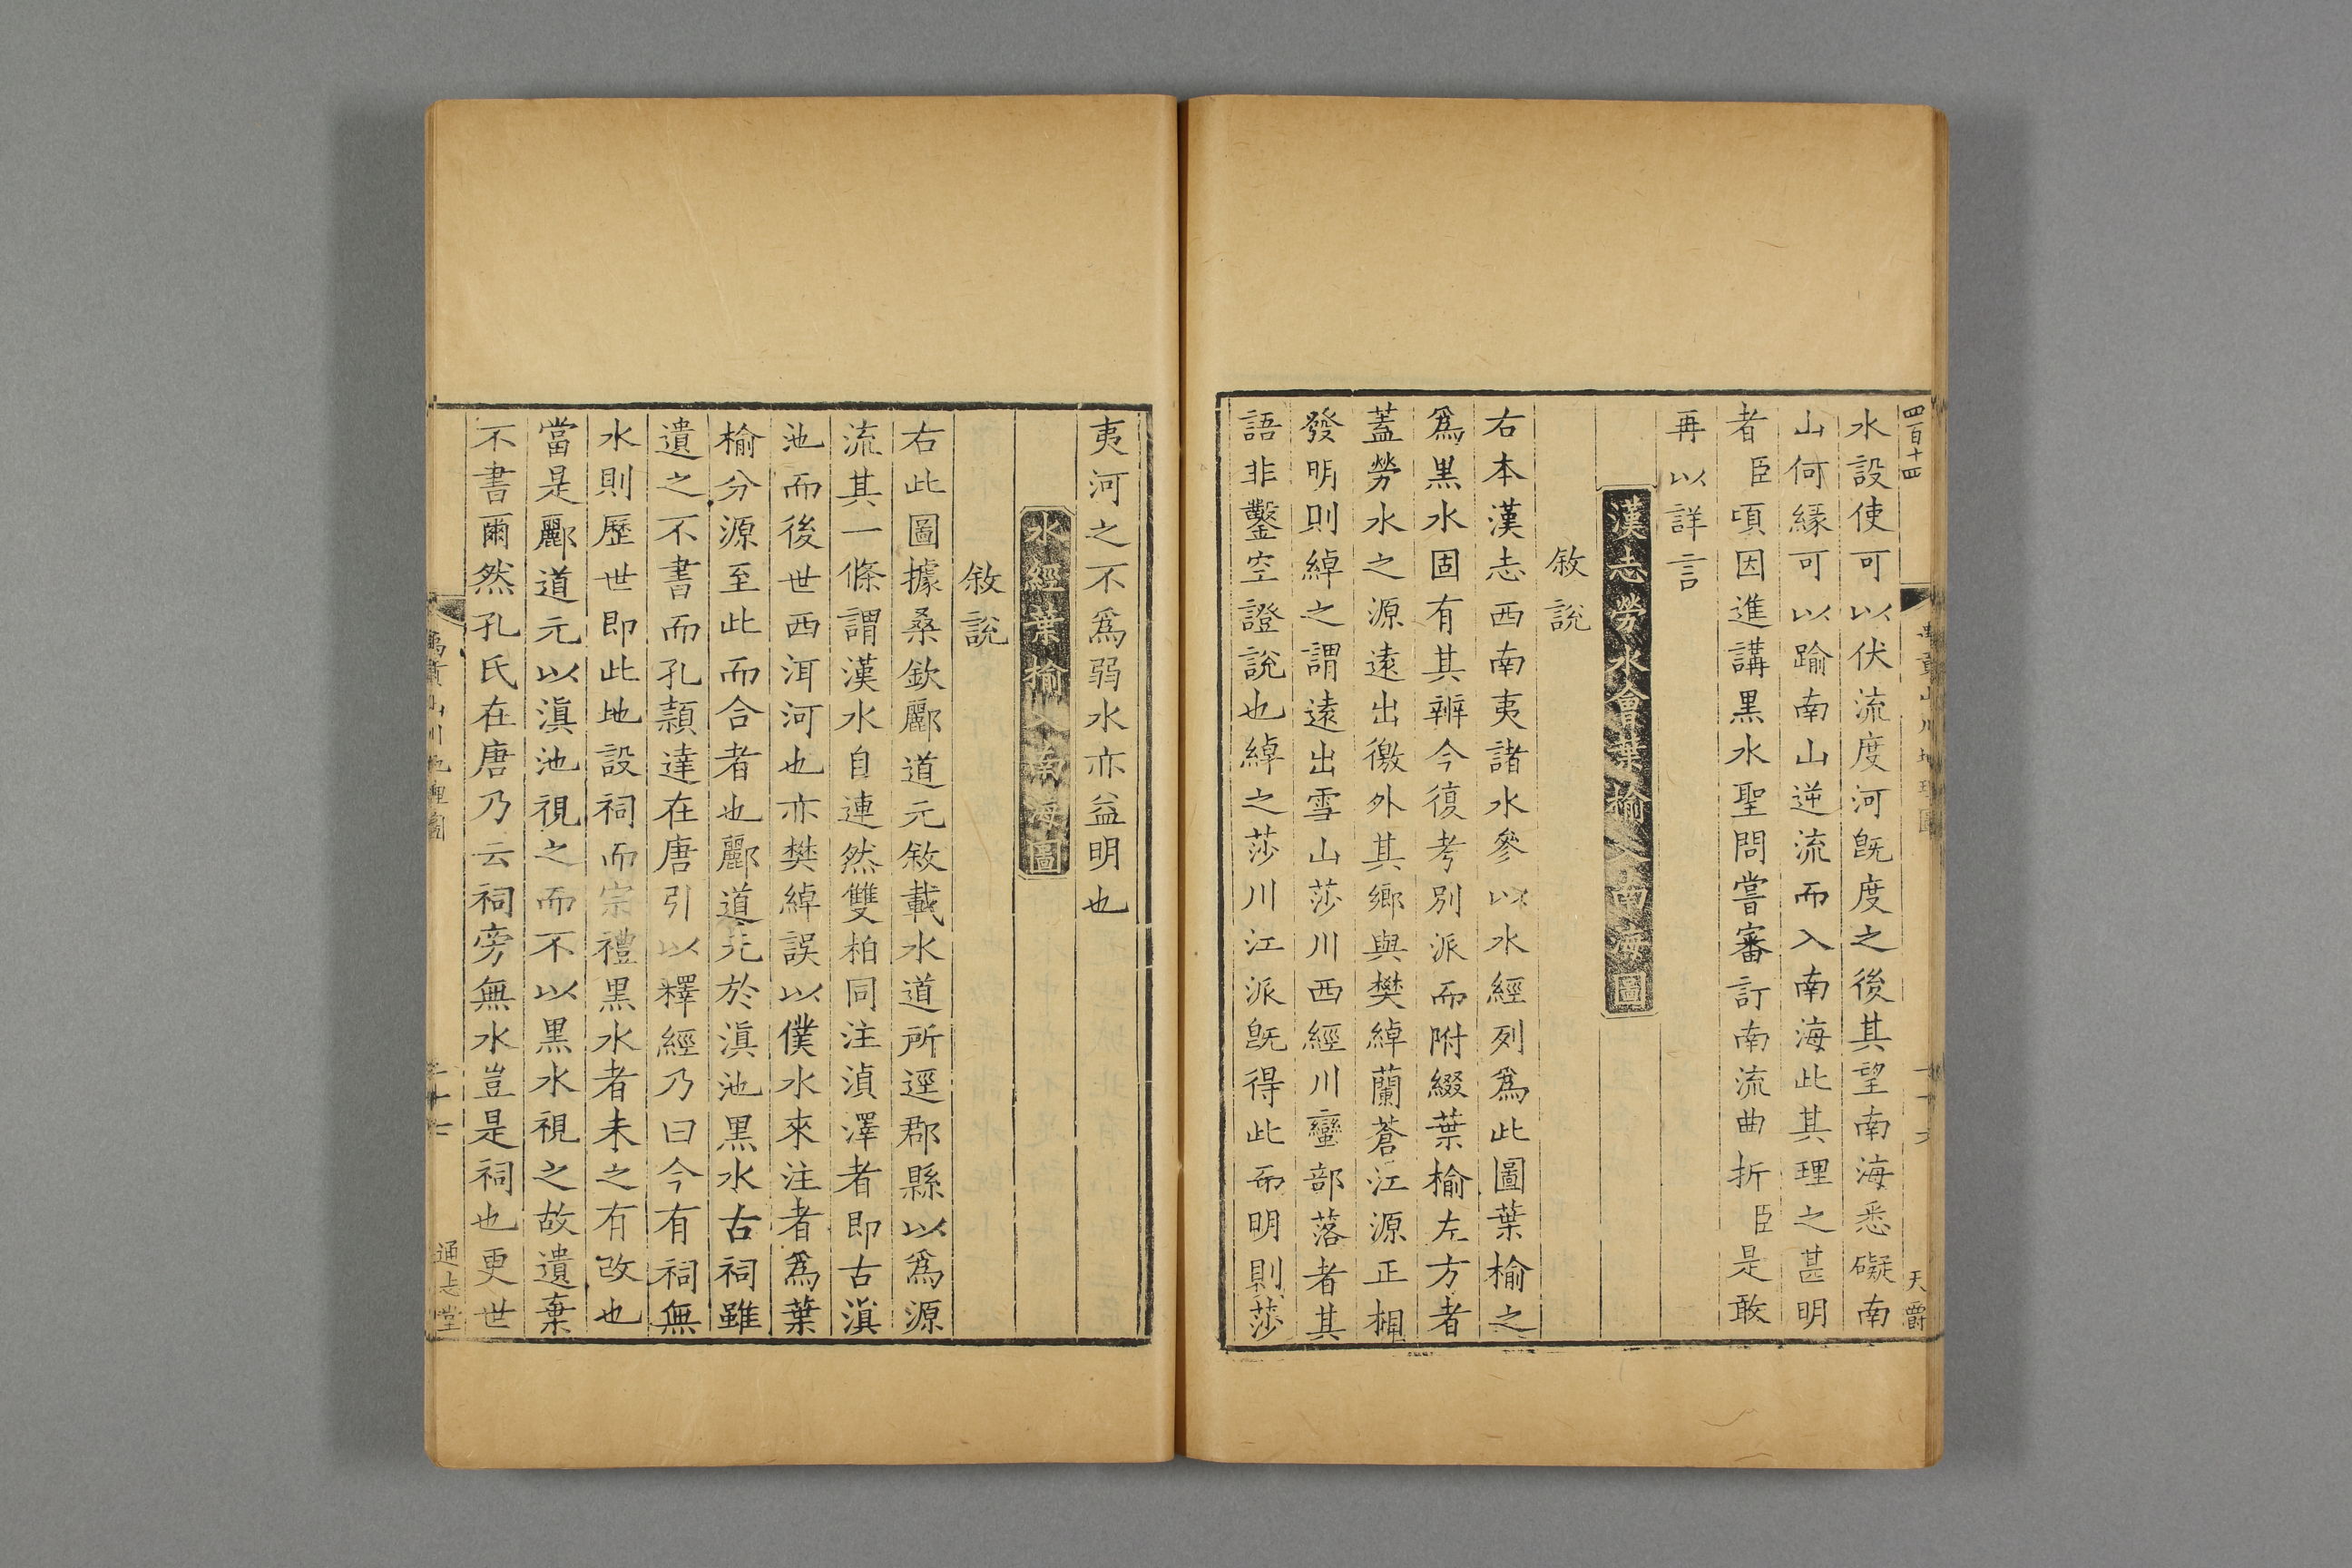 四百十四
天爵
水設使可以伏流度河旣度之後其望南海悉礙南
山何緣可以踰南山逆流而入南海此其理之甚明
者臣頃因進講黑水聖問嘗審訂南流曲折臣是敢
再以詳言
漢志勞水會葉榆入南海圖
敘說
右本漢志西南夷諸水參以水經列爲此圖葉榆之
爲黑水固有其辨今復考別派而附綴葉榆左方者
蓋勞水之源遠出徼外其鄉與樊綽蘭蒼江源正相
發明則綽之謂遠出雪山莎川西經川蠻部落者其
語非鑿空證說也綽之莎川江派旣得此而明則莎
夷河之不爲弱水亦益明也
水經葉榆入南海圖
敘說
右此圖據桑欽酈道元敘載水道所逕郡縣以爲源
流其一條謂漢水自連然雙柏同注滇澤者即古滇
池而後世西洱河也亦樊綽誤以僕水來注者爲葉
榆分源至此而合者也酈道元於滇池黑水古祠雖
遺之不書而孔穎達在唐引以釋經乃曰今有祠無
水則歷世即此地設祠而宗禮黑水者未之有改也
當是酈道元以滇池視之而不以黑水視之故遺棄
不書爾然孔氏在唐乃云祠旁無水豈是祠也更世
禹貢山川地理圖
二十七
通志堂